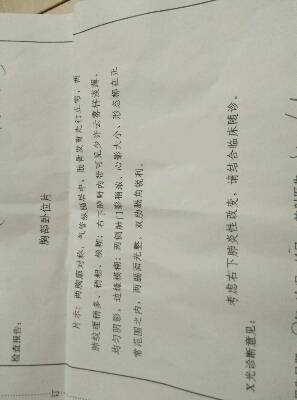 检查报告:
胸部卧位片
片示:两胸廓对称,气管纵隔居中,胸骨发育走行正常,两
肺纹理稍多、稍粗、模糊;右下肺野内带可见少许云雾样淡薄、
均匀阴影,边缘模糊;两侧肺门影稍浓,心影大小、形态都在正
常范围之内,两膈面光整,双肋膈角锐利。
X光诊断意见:
考虑右下肺炎性改变,请结合临床随诊。